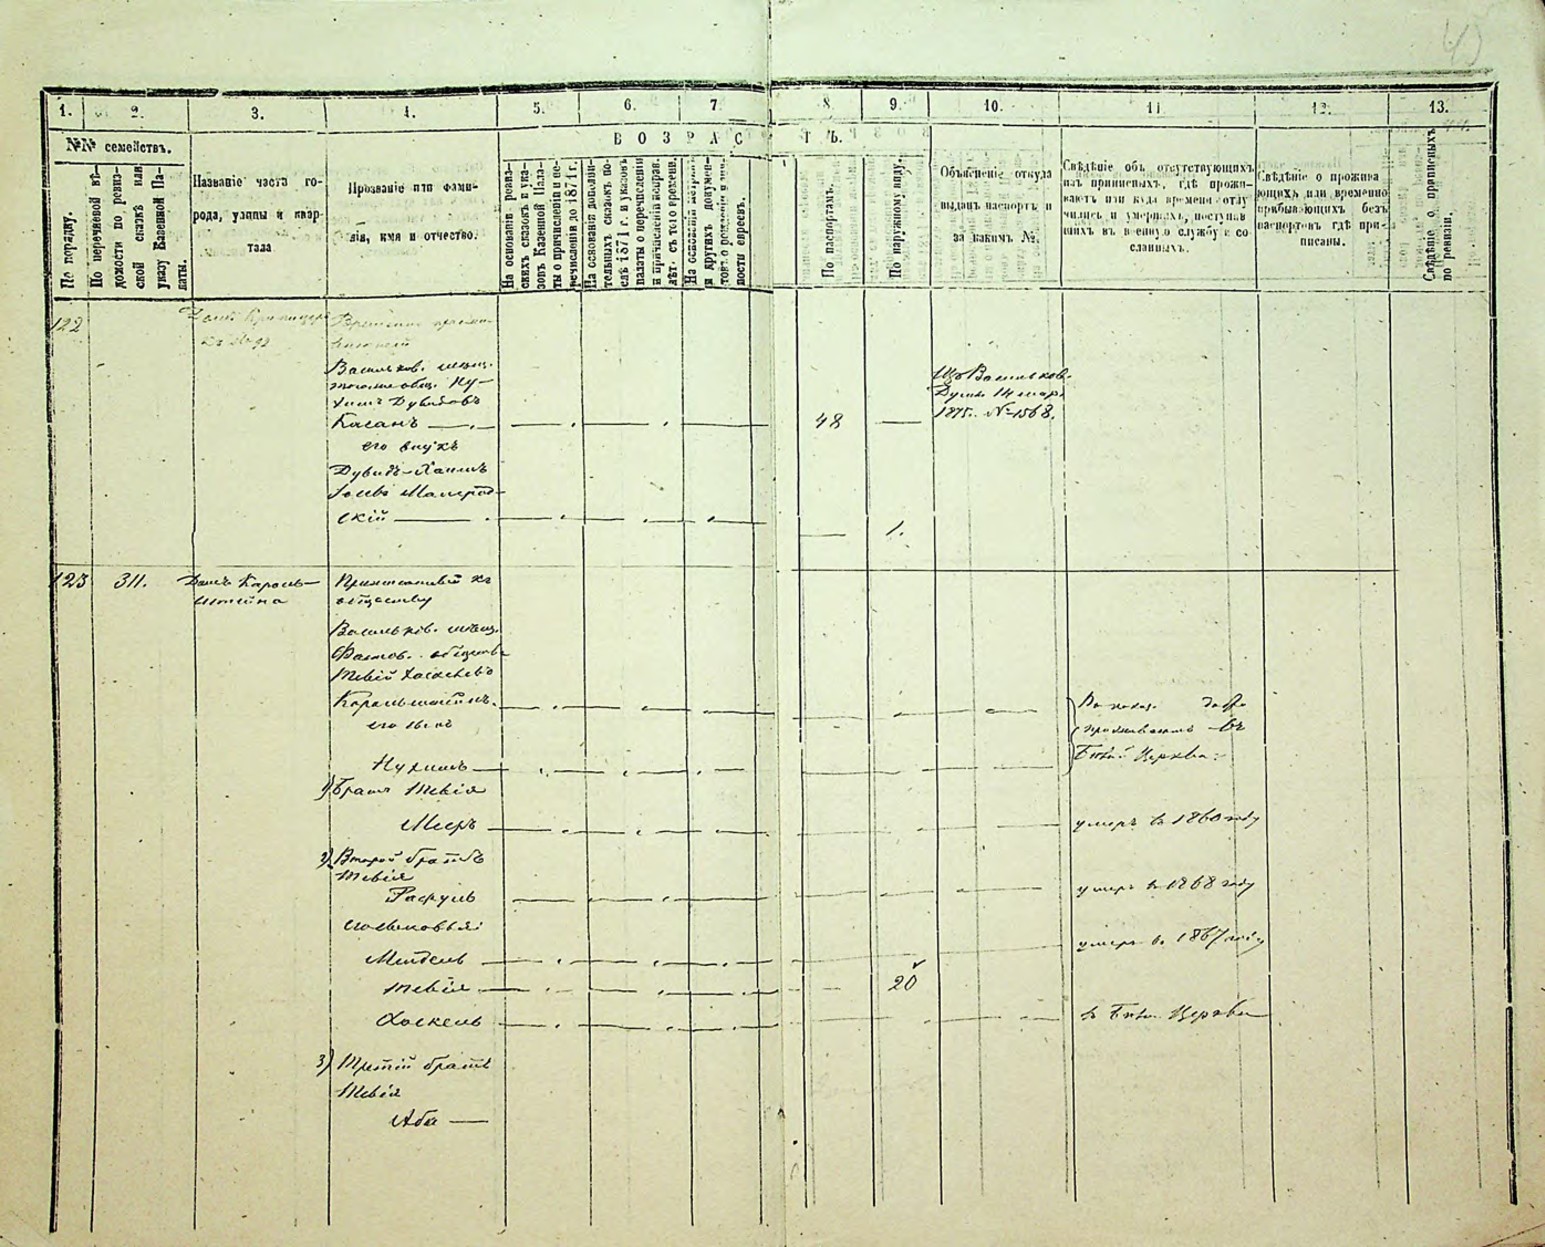 1. 2. 3. 4. 5. 6. 7. 8. 9. 10. 11. 12. 13.
№№ семействъ.
ВОЗРАСТЪ.
По порядку.
По перечневой вѣ-
домости по ревиз-
ской сказкѣ или
указу Казенной Па-
латы.
Названіе части го-
рода, улицы и квар-
тала
Прозваніе или фами-
лія, имя и отчество.
На основаніи ревиз-
скихъ сказокъ и ука-
зовъ Казенной Пала-
ты о причисленіи и пе-
речисленіи до 1871 г.
На основаніи дополни-
тельныхъ сказокъ по-
слѣ 1871 г. и указовъ
палаты о перечисленіи
и причисленіи
лѣт. съ того времени.
На основаніи метрик.
и другихъ докумен-
товъ о рожденіи и
ности евреевъ.
По паспортамъ.
По наружному виду.
Объясненіе откуда
выданъ паспортъ и
за какимъ №.
Свѣдѣніе объ отсутствующихъ
изъ приписныхъ, гдѣ прожи-
ваютъ или куда времени отлу
чились и умершихъ, поступив
шихъ въ военную службу и со
сланныхъ.
Свѣдѣніе о прожива
ющихъ или временно
прибывающихъ безъ
паспортовъ гдѣ при-
писаны.
Свѣдѣніе о приписныхъ
по ревизіи.
122
Домъ
№ 92
Васильков. мѣщ.
общ. Ну-
химъ Дувидовъ
Касанъ
48
Изъ Васильков.
Думы 14 мар.
1875. № 1568.
его внукъ
Дувидъ-Хаимъ
скій
1.
123 311.
Домъ Карль-
штейна
Приписанный къ
обществу
Васильков. мѣщ.
обществ
Тевій Хаскелевъ
Карльштейнъ.
его сынъ
Нухимъ
проживаютъ въ
Бѣлой Церкви.
1) Братъ Тевія
Мееръ
умеръ въ 1860 году
2) Второй братъ
Тевія
Рафуль
умеръ въ 1868 году
сыновья:
Мендель
умеръ въ 1867 году
Тевія
20
Хаскель
въ Бѣл. Церкви
3) Третій братъ
Тевія
Аба